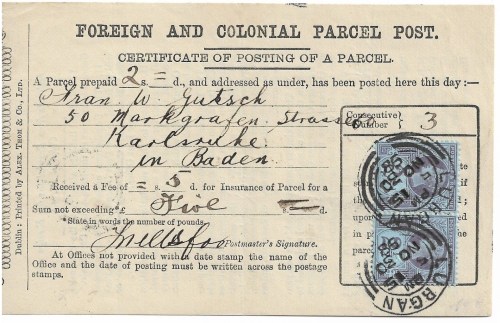 FOREIGN AND COLONIAL PARCEL POST.
CERTIFICATE OF POSTING OF A PARCEL.
A Parcel prepaid 2 s. = d., and addressed as under, has been posted here this day:—
Frau W. Gutsch
50 Markgrafen Strasse
Karlsruhe
in Baden
Consecutive Number 3
Received a Fee of = s. 5 d. for Insurance of Parcel for a
Sum not exceeding *£ Five s. — d.
*State in words the number of pounds.
Postmaster's Signature.
At Offices not provided with a date stamp the name of the
Office and the date of posting must be written across the postage
stamps.
Dublin: Printed by Alex. Thom & Co., Ltd.
LURGAN
LURGAN